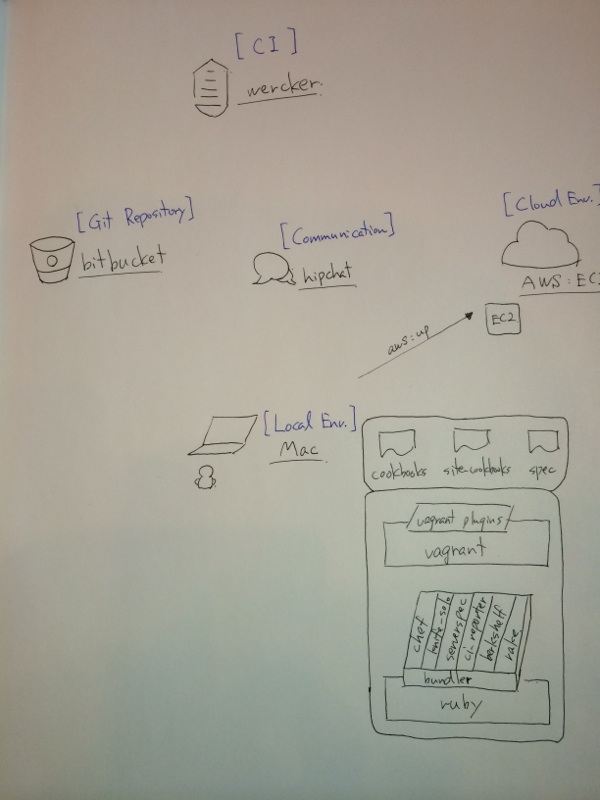 [CI]
wercker.
[Git Repository]
bitbucket
[Communication]
hipchat
[Cloud Env.]
AWS:EC2
EC2
aws:up
[Local Env.]
Mac
cookbooks
site-cookbooks
spec
vagrant plugins
vagrant
chef
knife-solo
serverspec
ci_reporter
berkshelf
rake
bundler
ruby